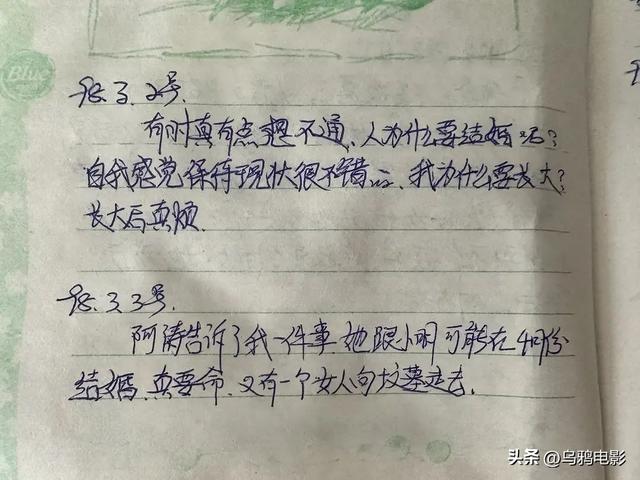 Blue
98.3.2号.
有时真有点想不通、人为什么要结婚呢?
自我感觉保持现状很不错、我为什么要长大?
长大后真烦.
98.3.3号.
阿涛告诉了我一件事.她跟小明可能在4月份
结婚.真要命.又有一个女人向坟墓走去.
头条 @乌鸦电影